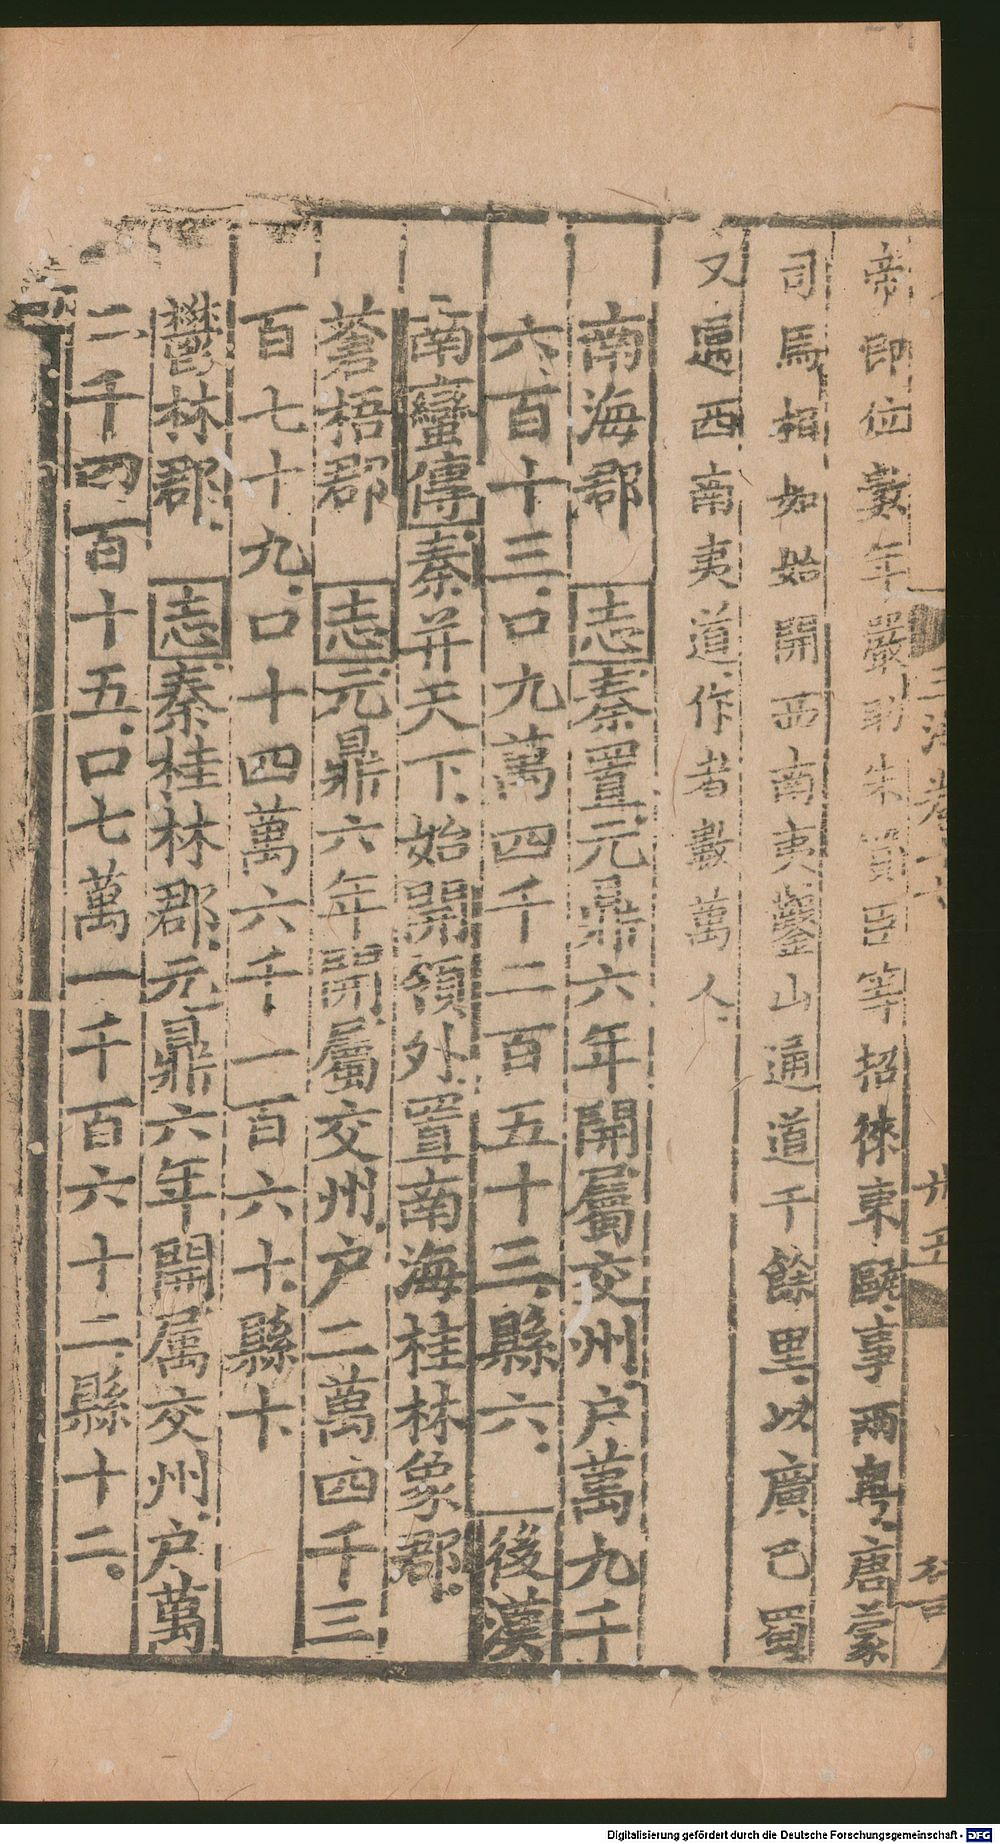 帝即位數年嚴助朱買臣等招徠東甌事兩粤唐蒙
司馬相如始開西南夷鑿山通道千餘里以廣巴蜀
又遍西南夷道作者數萬人
南海郡 志秦置元鼎六年開屬交州户萬九千
六百十三口九萬四千二百五十三縣六 後漢
南蠻傳秦并天下始開領外置南海桂林象郡
蒼梧郡 志元鼎六年開屬交州户二萬四千三
百七十九口十四萬六千一百六十縣十
鬱林郡 志秦桂林郡元鼎六年開属交州户萬
二千四百十五口七萬一千百六十二縣十二
Digitalisierung gefördert durch die Deutsche Forschungsgemeinschaft - DFG